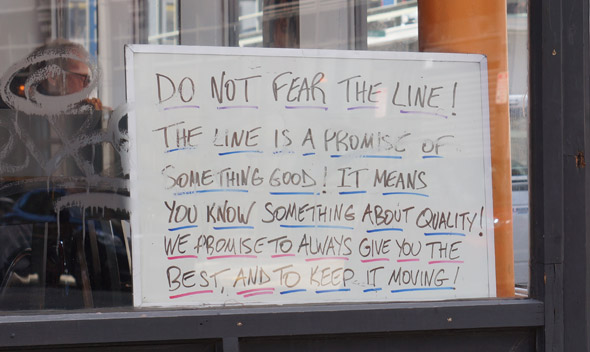 DO NOT FEAR THE LINE!
THE LINE IS A PROMISE OF
SOMETHING GOOD! IT MEANS
YOU KNOW SOMETHING ABOUT QUALITY!
WE PROMISE TO ALWAYS GIVE YOU THE
BEST, AND TO KEEP IT MOVING!